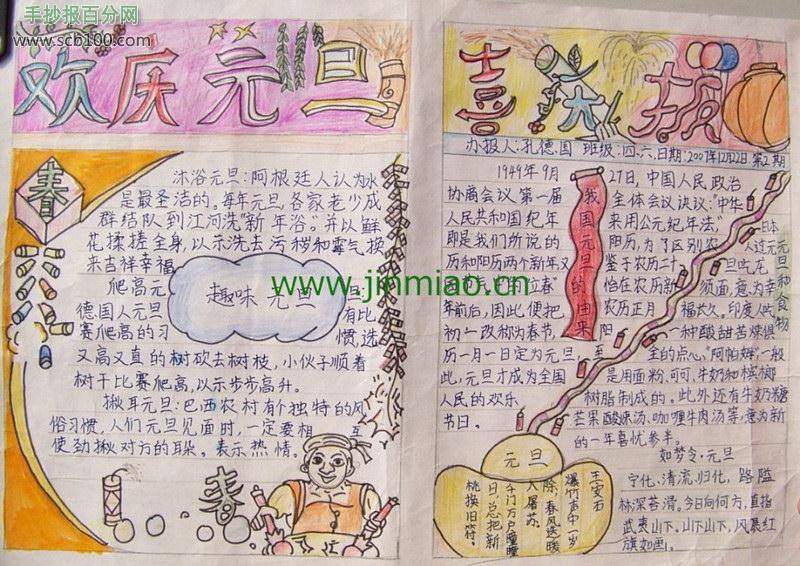 手抄报百分网
www.scb100.com
欢庆元旦
喜大报
办报人:孔德国 班级:四.六.日期:2007年12月22日 第2期
春
沐浴元旦:阿根廷人认为水
是最圣洁的。每年元旦,各家老少成
群结队到江河洗"新年浴。并以鲜
花揉搓全身,以示洗去污秽和霉气换
来吉祥幸福
趣味元旦
爬高元旦:
德国人元旦有比
赛爬高的习惯,选
又高又直的树砍去树枝,小伙子顺着
树干比赛爬高,以示步步高升。
揪耳元旦:巴西农村有个独特的风
俗习惯,人们元旦见面时,一定要相互
使劲揪对方的耳朵。表示热情。
春
我国元旦的由来
1949年9月27日,中国人民政治
协商会议第一届全体会议决议:"中华
人民共和国纪年采用公元纪年法"
即是我们所说的阳历,为了区别农
历和阳历两个新年又鉴于农历二十
四节气中的"立春"恰在农历新
年前后,因此,便把农历正月
初一改称为春节,阳
历一月一日定为元旦,至
此,元旦才成为全国
人民的欢乐
节日。
元旦和食物
日本
人过元
旦吃龙
须面,意为幸
福长久。印度人吃
一种酸甜苦辣俱
全的点心,"阿帕姆"一般
是用面粉、可可、牛奶和槟榔
树脂制成的。此外还有牛奶糖
芒果酸味汤、咖喱牛肉汤等意为新
的一年喜忧参半。
元旦
王安石
爆竹声中一岁
除,春风送暖
入屠苏。
千门万户曈曈
日,总把新
桃换旧符。
如梦令·元旦
宁化、清流、归化,路隘
林深苔滑。今日向何方,直指
武夷山下。山下山下,风展红
旗如画。
www.jinmiao.cn